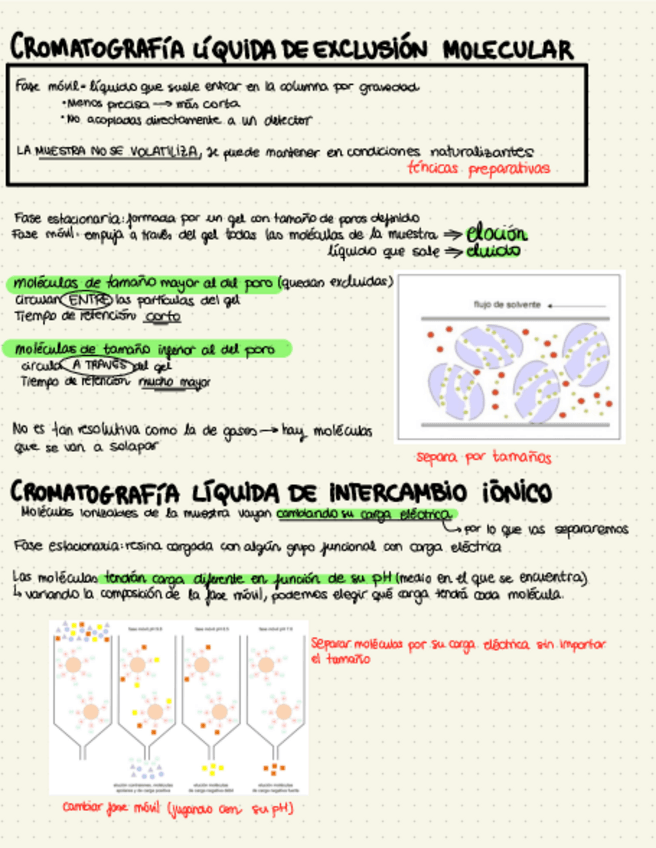 CROMATOGRAFÍA LÍQUIDA DE EXCLUSIÓN MOLECULAR
Fase móvil = líquido que suele entrar en la columna por gravedad
• Menos precisa → más corta
• No acopladas directamente a un detector
LA MUESTRA NO SE VOLATILIZA, se puede mantener en condiciones naturalizantes
téncicas preparativas
Fase estacionaria: formada por un gel con tamaño de poros definido
Fase móvil: empuja a través del gel todas las moléculas de la muestra ⇒ elución
líquido que sale ⇒ eluido
moléculas de tamaño mayor al del poro (quedan excluidas)
circulan ENTRE las partículas del gel
Tiempo de retención corto
flujo de solvente
moléculas de tamaño inferior al del poro
circula A TRAVÉS del gel
Tiempo de retención mucho mayor
No es tan resolutiva como la de gases → hay moléculas
que se van a solapar
separa por tamaños
CROMATOGRAFÍA LÍQUIDA DE INTERCAMBIO IÓNICO
Moléculas ionizables de la muestra vayan cambiando su carga eléctrica
↳ por lo que las separaremos
Fase estacionaria: resina cargada con algún grupo funcional con carga eléctrica
Las moléculas tendrán carga diferente en función de su pH (medio en el que se encuentra)
↳ variando la composición de la fase móvil, podemos elegir qué carga tendrá cada molécula.
Separar moléculas por su carga eléctrica sin importar
el tamaño
cambiar fase móvil (jugando con su pH)